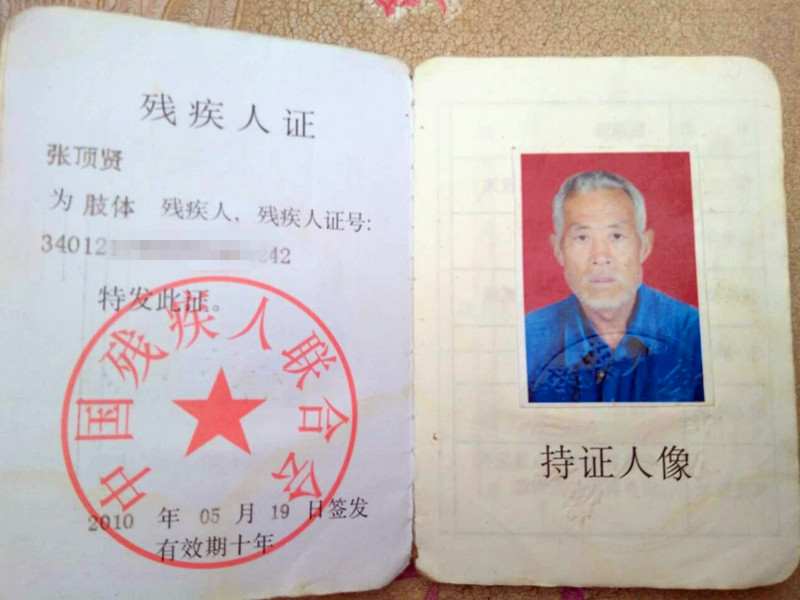 残疾人证
张顶贤
为 肢体 残疾人、残疾人证号:
34012 242
特发此证。
中国残疾人联合会
2010 年 05 月 19 日签发
有效期十年
持证人像